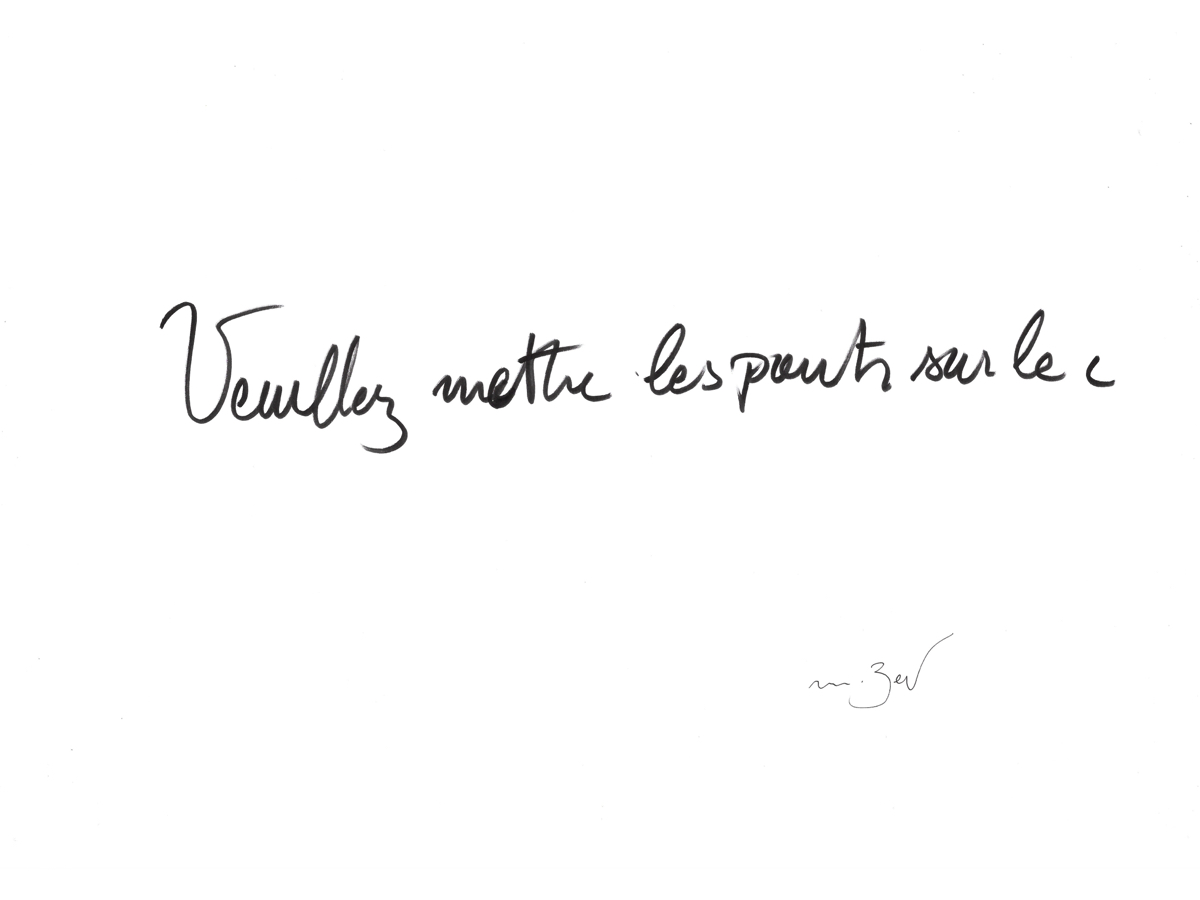 Veuillez mettre les points sur le i
m. Zev